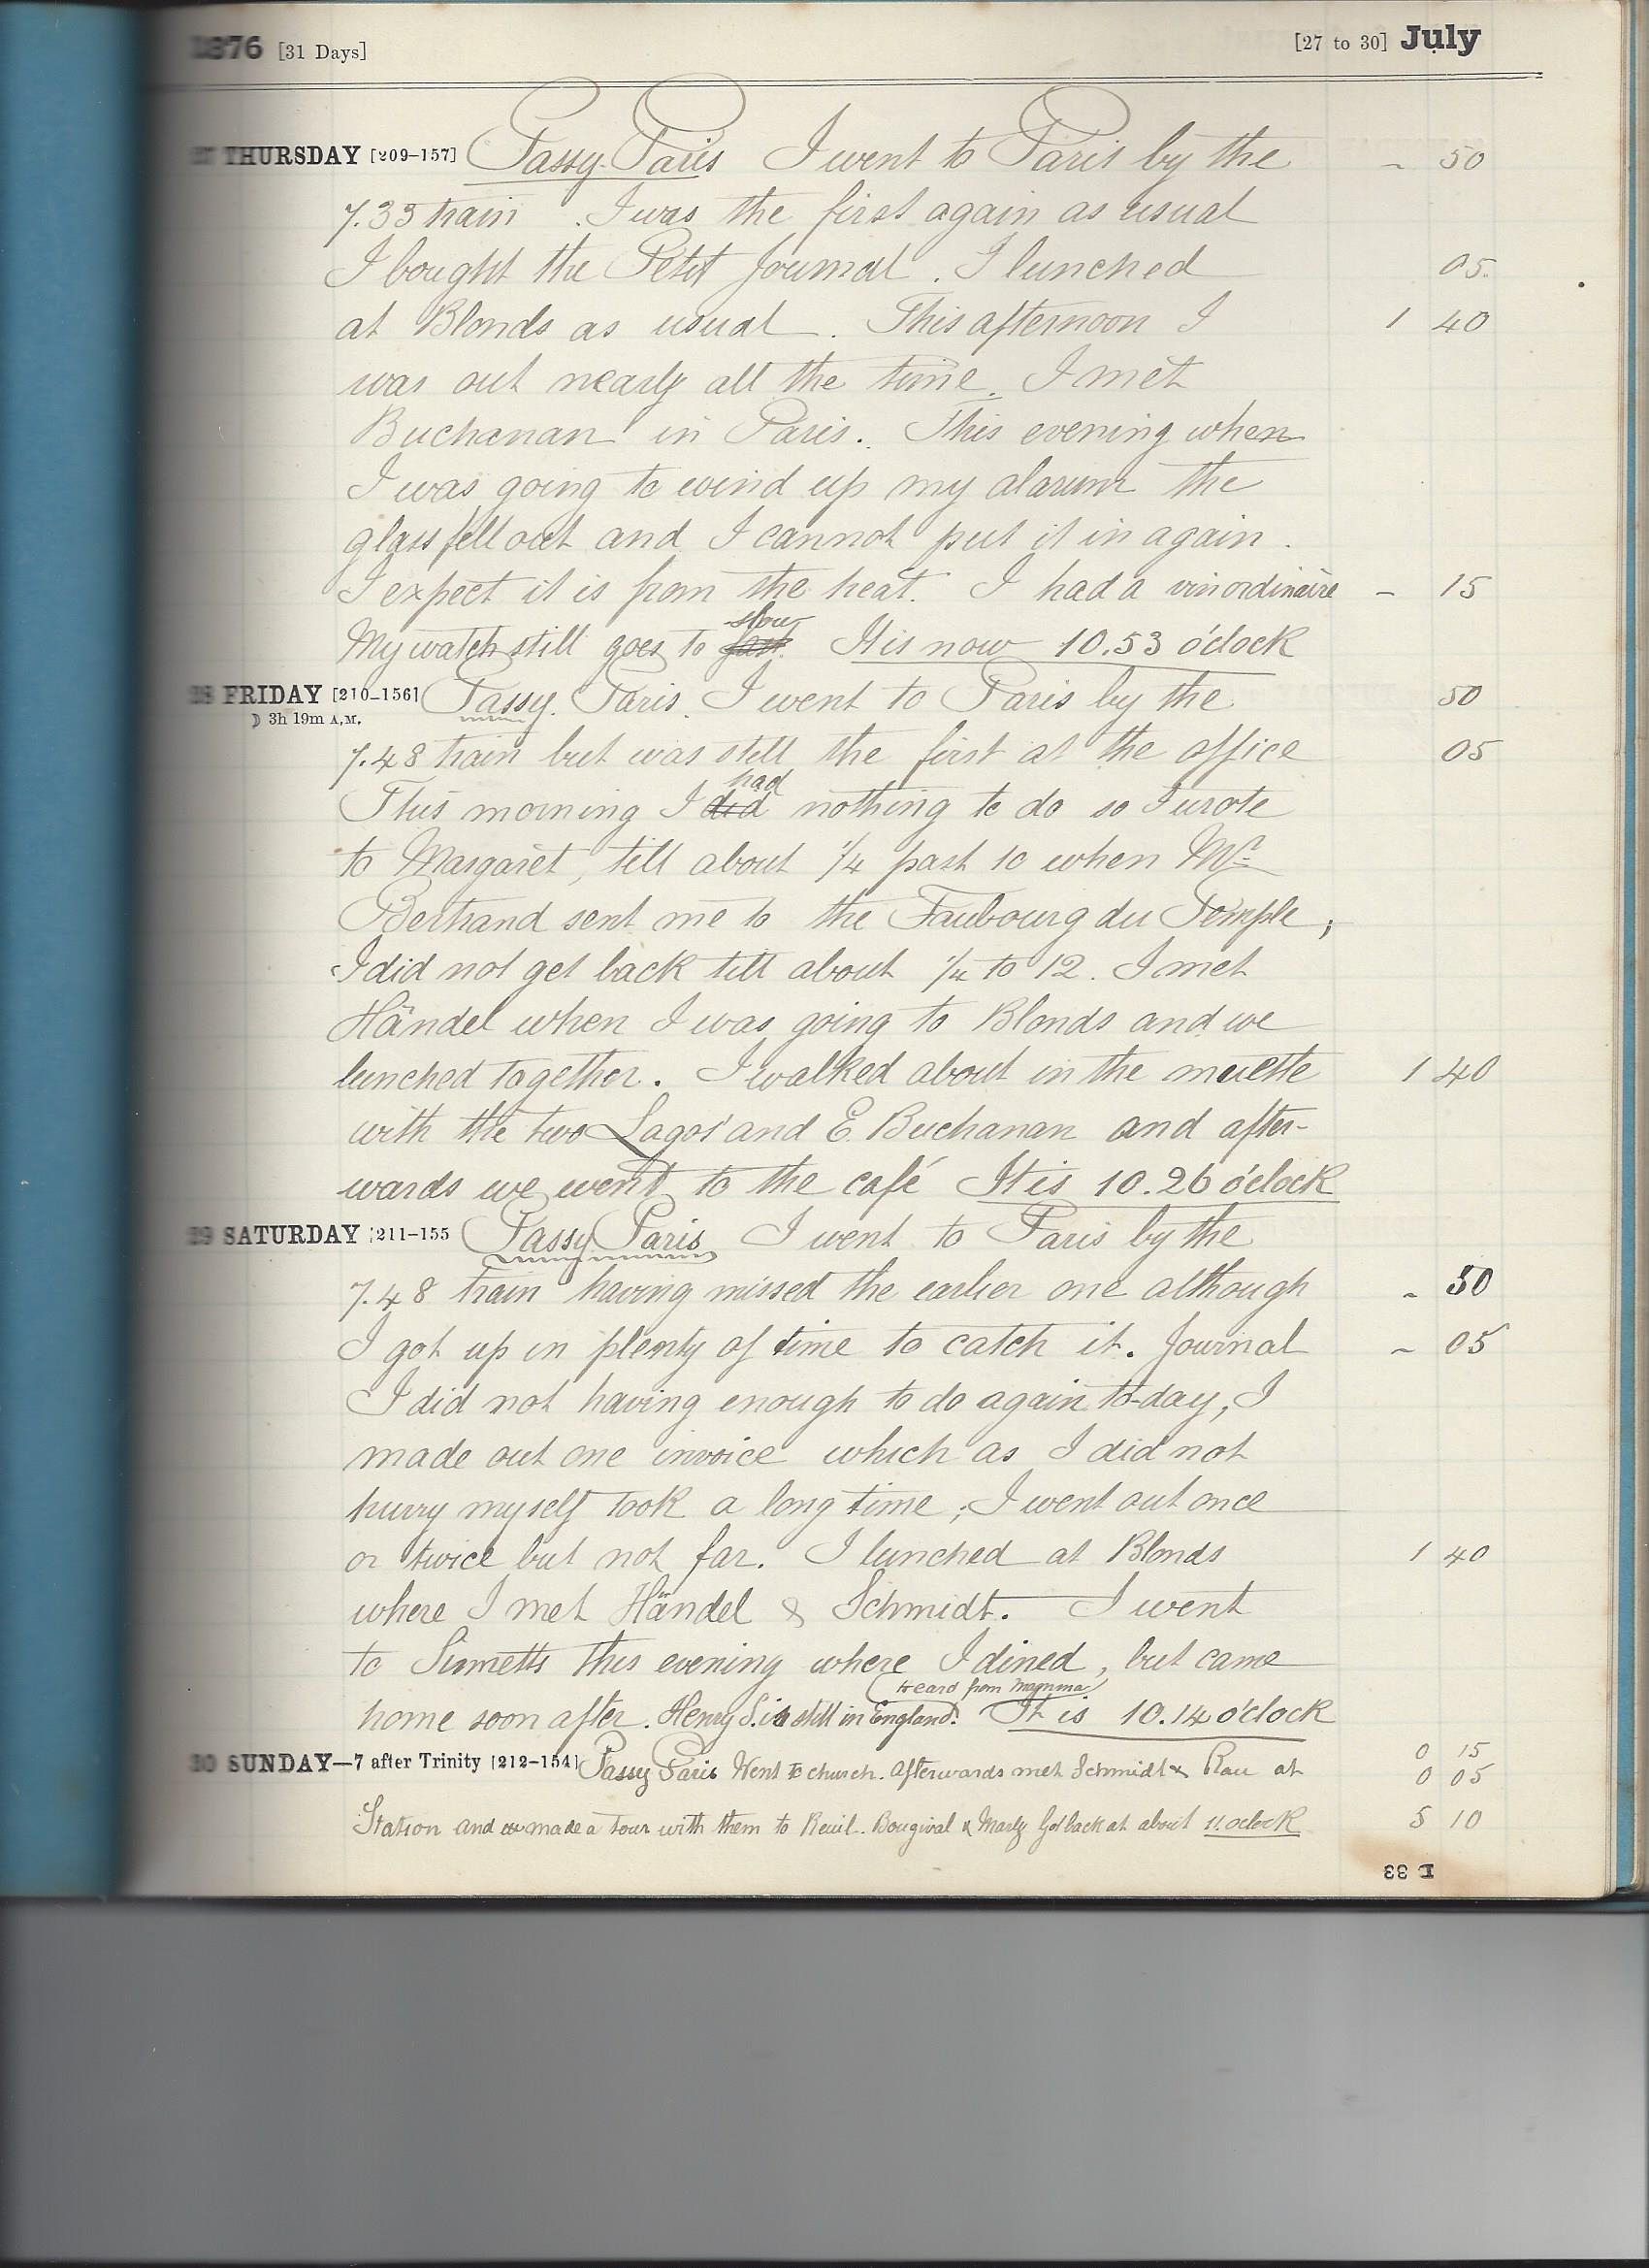 1876 [31 Days] [27 to 30] July
27 THURSDAY [209-157] Passy. Paris I went to Paris by the - 50
7.33 train. I was the first again as usual
I bought the Petit Journal. I lunched 05.
at Blonds as usual. This afternoon I 1 40
was out nearly all the time. I met
Buchanan in Paris. This evening when
I was going to wind up my alarum the
glass fell out and I cannot put it in again.
I expect it is from the heat. I had a vin ordinaire - 15
slow
My watch still goes to fast. It is now 10.53 o'clock
28 FRIDAY [210-156] Passy. Paris. I went to Paris by the 50
☽ 3h 19m A.M.
7.48 train but was still the first at the office 05
had
This morning I did nothing to do so I wrote
to Margaret, till about 1/4 past 10 when Mr
Bertrand sent me to the Faubourg du Temple,
I did not get back till about 1/4 to 12. I met
Händel when I was going to Blonds and we
lunched together. I walked about in the muette 1 40
with the two Lagos' and E. Buchanan and after-
wards we went to the café It is 10.26 o'clock
29 SATURDAY [211-155 Passy Paris I went to Paris by the
7.48 train having missed the earlier one although - 50
I got up in plenty of time to catch it. Journal - 05
I did not having enough to do again to-day, I
made out one invoice which as I did not
hurry myself took a long time; I went out once
or twice but not far. I lunched at Blonds 1 40
where I met Händel & Schmidt. I went
to Sinnetts this evening where I dined, but came
heard from Mamma
home soon after. Henry S. is still in England. It is 10.14 o'clock
30 SUNDAY—7 after Trinity [212-154] Passy Paris Went to church. Afterwards met Schmidt & Rau at 0 15
0 05
Station and made a tour with them to Reuil. Bougival & Marly Got back at about 11. oclock 5 10
D 33